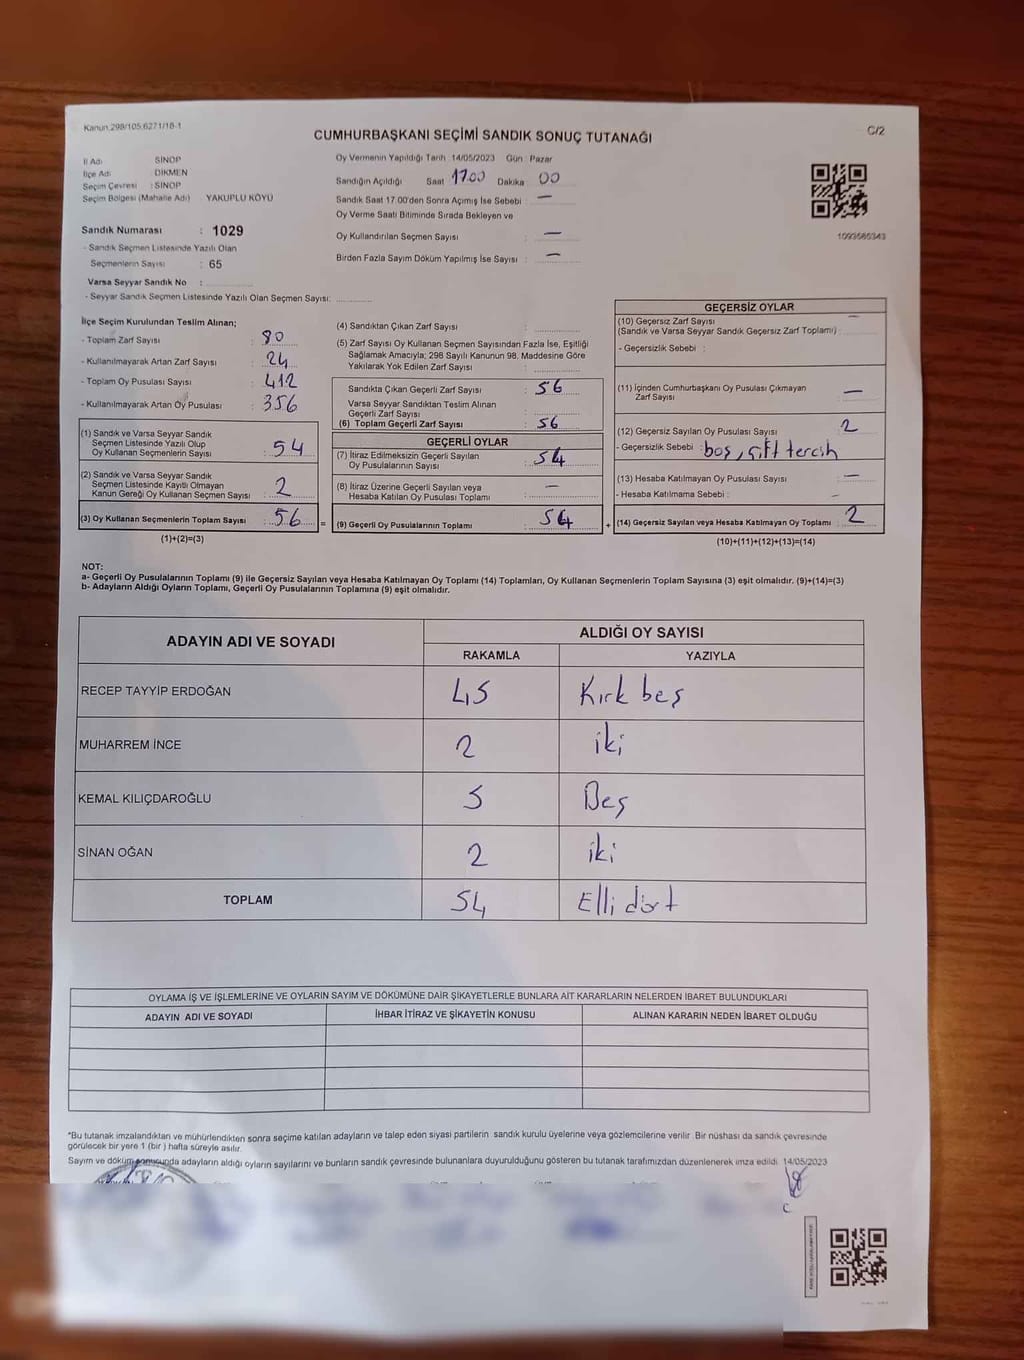 Kanun:298/105,6271/18-1
CUMHURBAŞKANI SEÇİMİ SANDIK SONUÇ TUTANAĞI
C/2
İl Adı SİNOP
İlçe Adı DİKMEN
Seçim Çevresi : SİNOP
Seçim Bölgesi (Mahalle Adı) YAKUPLU KÖYÜ
Oy Vermenin Yapıldığı Tarih 14/05/2023 Gün Pazar
Sandığın Açıldığı Saat 17.00 Dakika 00
Sandık Saat 17.00'den Sonra Açımış İse Sebebi : —
Oy Verme Saati Bitiminde Sırada Bekleyen ve
Oy Kullandırılan Seçmen Sayısı : —
Birden Fazla Sayım Döküm Yapılmış İse Sayısı : —
1093585343
Sandık Numarası : 1029
- Sandık Seçmen Listesinde Yazılı Olan
Seçmenlerin Sayısı : 65
Varsa Seyyar Sandık No :
- Seyyar Sandık Seçmen Listesinde Yazılı Olan Seçmen Sayısı:
İlçe Seçim Kurulundan Teslim Alınan;
- Toplam Zarf Sayısı : 80
- Kullanılmayarak Artan Zarf Sayısı : 24
- Toplam Oy Pusulası Sayısı : 412
- Kullanılmayarak Artan Oy Pusulası : 356
(1) Sandık ve Varsa Seyyar Sandık
Seçmen Listesinde Yazılı Olup
Oy Kullanan Seçmenlerin Sayısı : 54
(2) Sandık ve Varsa Seyyar Sandık
Seçmen Listesinde Kayıtlı Olmayan
Kanun Gereği Oy Kullanan Seçmen Sayısı : 2
(3) Oy Kullanan Seçmenlerin Toplam Sayısı : 56 =
(1)+(2)=(3)
(4) Sandıktan Çıkan Zarf Sayısı :
(5) Zarf Sayısı Oy Kullanan Seçmen Sayısından Fazla İse, Eşitliği
Sağlamak Amacıyla; 298 Sayılı Kanunun 98. Maddesine Göre
Yakılarak Yok Edilen Zarf Sayısı :
Sandıkta Çıkan Geçerli Zarf Sayısı : 56
Varsa Seyyar Sandıktan Teslim Alınan
Geçerli Zarf Sayısı :
(6) Toplam Geçerli Zarf Sayısı : 56
GEÇERLİ OYLAR
(7) İtiraz Edilmeksizin Geçerli Sayılan
Oy Pusulalarının Sayısı : 54
(8) İtiraz Üzerine Geçerli Sayılan veya
Hesaba Katılan Oy Pusulası Toplamı : —
(9) Geçerli Oy Pusulalarının Toplamı : 54 +
GEÇERSİZ OYLAR
(10) Geçersiz Zarf Sayısı —
(Sandık ve Varsa Seyyar Sandık Geçersiz Zarf Toplamı) :
- Geçersizlik Sebebi :
(11) İçinden Cumhurbaşkanı Oy Pusulası Çıkmayan
Zarf Sayısı : —
(12) Geçersiz Sayılan Oy Pusulası Sayısı : 2
- Geçersizlik Sebebi : boş, çift tercih
(13) Hesaba Katılmayan Oy Pusulası Sayısı : —
- Hesaba Katılmama Sebebi : –
(14) Geçersiz Sayılan veya Hesaba Katılmayan Oy Toplamı : 2
(10)+(11)+(12)+(13)=(14)
NOT:
a- Geçerli Oy Pusulalarının Toplamı (9) ile Geçersiz Sayılan veya Hesaba Katılmayan Oy Toplamı (14) Toplamları, Oy Kullanan Seçmenlerin Toplam Sayısına (3) eşit olmalıdır. (9)+(14)=(3)
b- Adayların Aldığı Oyların Toplamı, Geçerli Oy Pusulalarının Toplamına (9) eşit olmalıdır.
ADAYIN ADI VE SOYADI ALDIĞI OY SAYISI
RAKAMLA YAZIYLA
RECEP TAYYİP ERDOĞAN 45 Kırk beş
MUHARREM İNCE 2 iki
KEMAL KILIÇDAROĞLU 5 Beş
SİNAN OĞAN 2 iki
TOPLAM 54 Elli dört
OYLAMA İŞ VE İŞLEMLERİNE VE OYLARIN SAYIM VE DÖKÜMÜNE DAİR ŞİKAYETLERLE BUNLARA AİT KARARLARIN NELERDEN İBARET BULUNDUKLARI
ADAYIN ADI VE SOYADI İHBAR İTİRAZ VE ŞİKAYETİN KONUSU ALINAN KARARIN NEDEN İBARET OLDUĞU
*Bu tutanak imzalandıktan ve mühürlendikten sonra seçime katılan adayların ve talep eden siyasi partilerin sandık kurulu üyelerine veya gözlemcilerine verilir. Bir nüshası da sandık çevresinde
görülecek bir yere 1 (bir) hafta süreyle asılır.
Sayım ve döküm sonucunda adayların aldığı oyların sayılarını ve bunların sandık çevresinde bulunanlara duyurulduğunu gösteren bu tutanak tarafımızdan düzenlenerek imza edildi. 14/05/2023